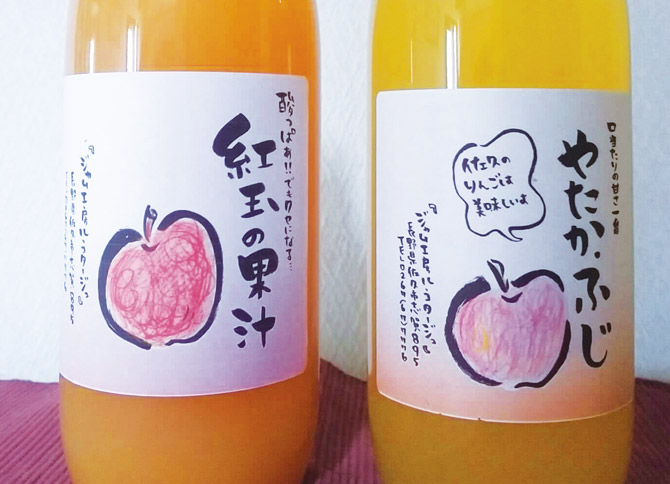 酸っぱぁ!!でもクセになる…
紅玉の果汁
『ジャム工房ル・コタージュ』
長野県佐久市
口当たりの甘さ一番
やたかふじ
佐久の
りんごは
美味しいよ
『ジャム工房ル・コタージュ』
長野県佐久市